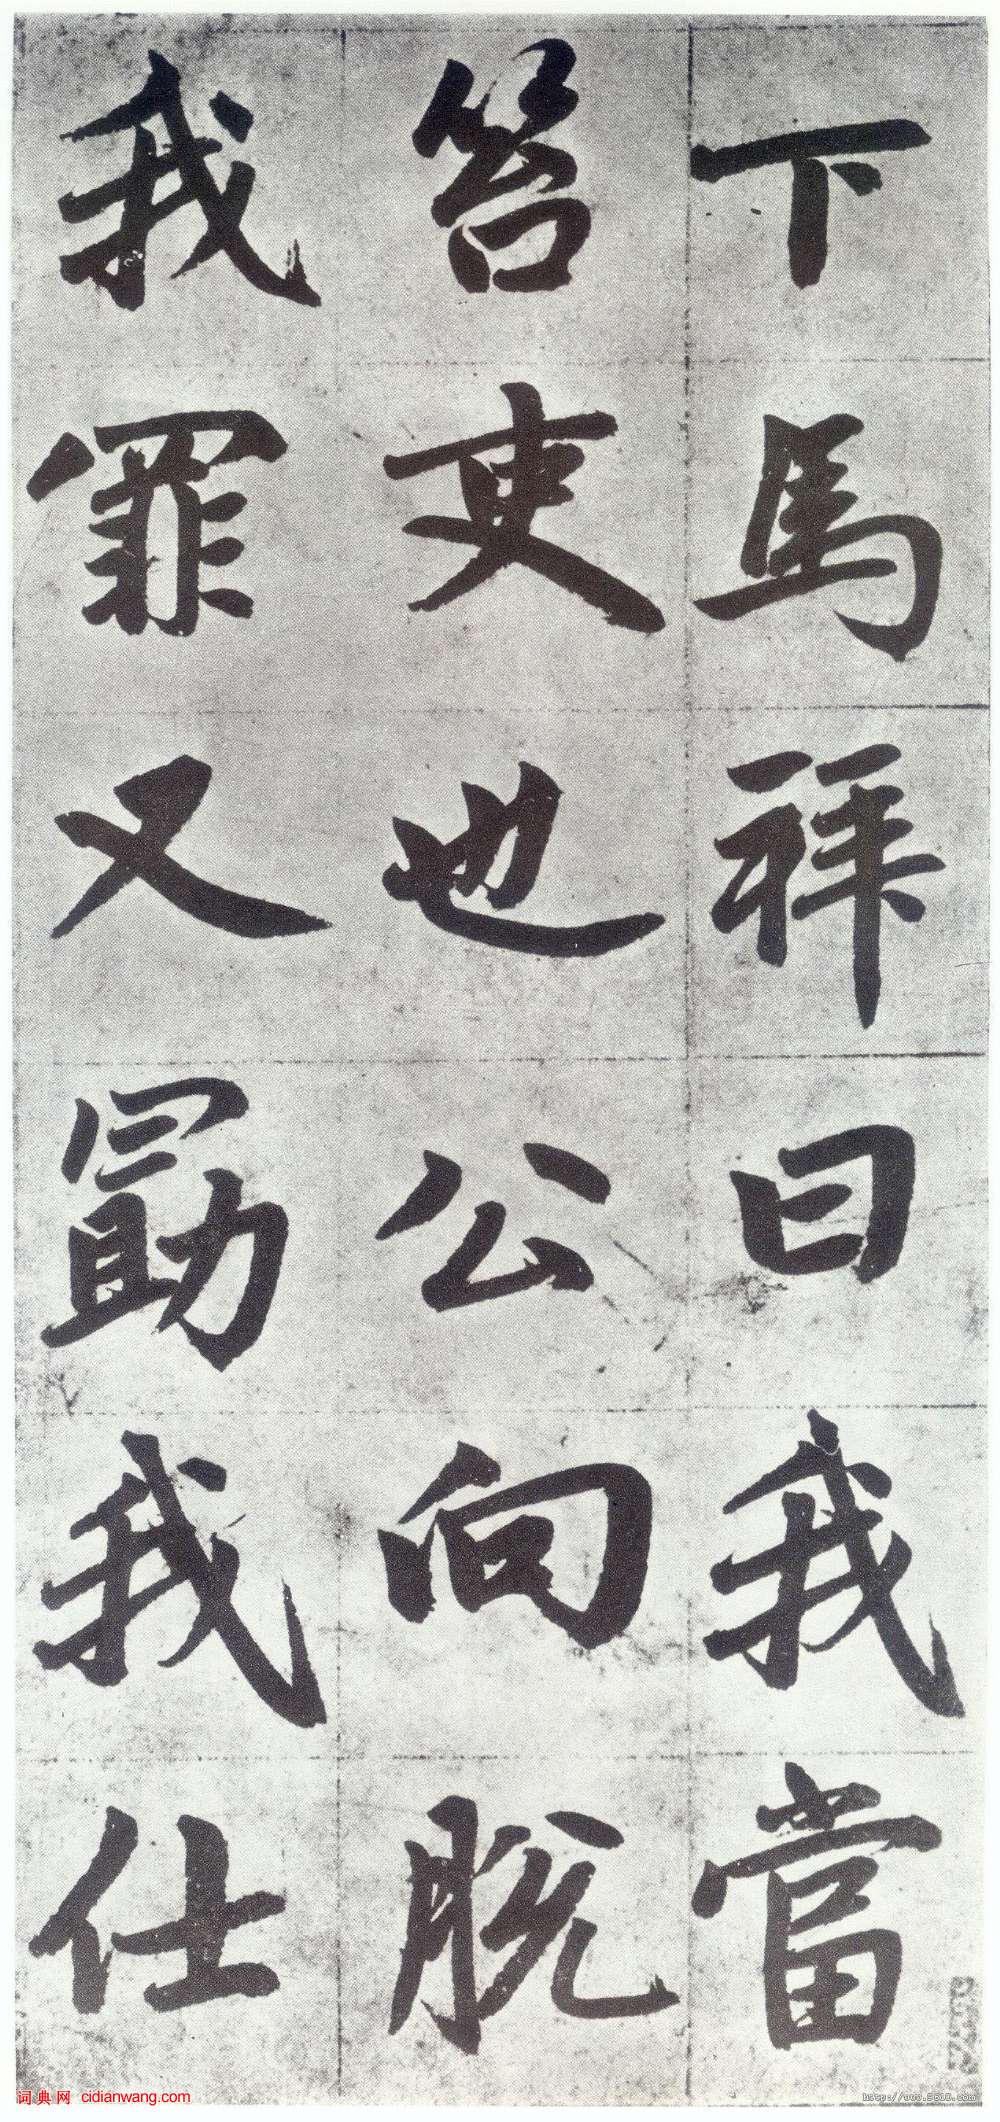 下馬拜曰我當
笞吏也公向脫
我罪又勗我仕
词典网 cidianwang.com
http://www.9610.com